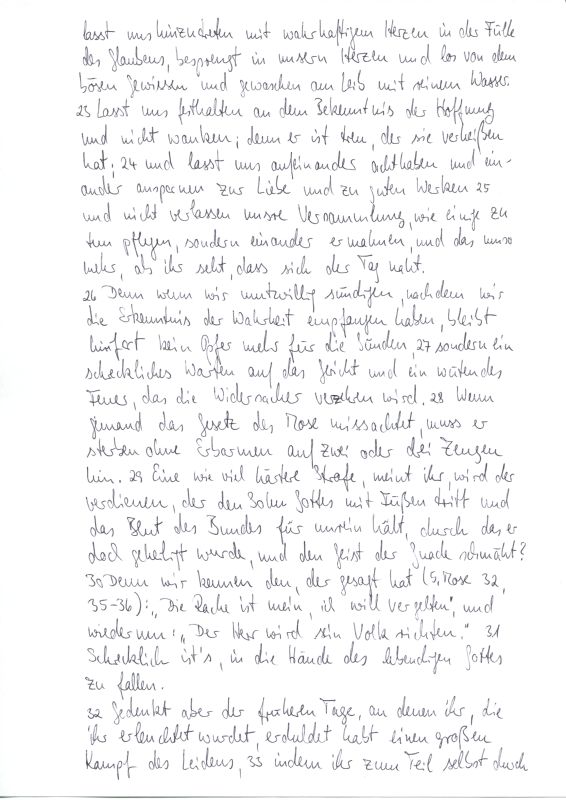 lasst uns hinzutreten mit wahrhaftigem Herzen in der Fülle
des Glaubens, besprengt in unsern Herzen und los von dem
bösen Gewissen und gewaschen am Leib mit reinem Wasser.
23 Lasst uns festhalten an dem Bekenntnis der Hoffnung
und nicht wanken; denn er ist treu, der sie verheißen
hat; 24 und lasst uns aufeinander achthaben und ein-
ander anspornen zur Liebe und zu guten Werken 25
und nicht verlassen unsre Versammlung, wie einige zu
tun pflegen, sondern einander ermahnen, und das umso
mehr, als ihr seht, dass sich der Tag naht.
26 Denn wenn wir mutwillig sündigen, nachdem wir
die Erkenntnis der Wahrheit empfangen haben, bleibt
hinfort kein Opfer mehr für die Sünden, 27 sondern ein
schreckliches Warten auf das Gericht und ein wütendes
Feuer, das die Widersacher verzehren wird. 28 Wenn
jemand das Gesetz des Mose missachtet, muss er
sterben ohne Erbarmen auf zwei oder drei Zeugen
hin. 29 Eine wie viel härtere Strafe, meint ihr, wird der
verdienen, der den Sohn Gottes mit Füßen tritt und
das Blut des Bundes für unrein hält, durch das er
doch geheiligt wurde, und den Geist der Gnade schmäht?
30 Denn wir kennen den, der gesagt hat (5, Mose 32,
35-36): „Die Rache ist mein, ich will vergelten", und
wiederum: „Der Herr wird sein Volk richten." 31
Schrecklich ist's, in die Hände des lebendigen Gottes
zu fallen.
32 Gedenkt aber der früheren Tage, an denen ihr, die
ihr erleuchtet wurdet, erduldet habt einen großen
Kampf des Leidens, 33 indem ihr zum Teil selbst durch